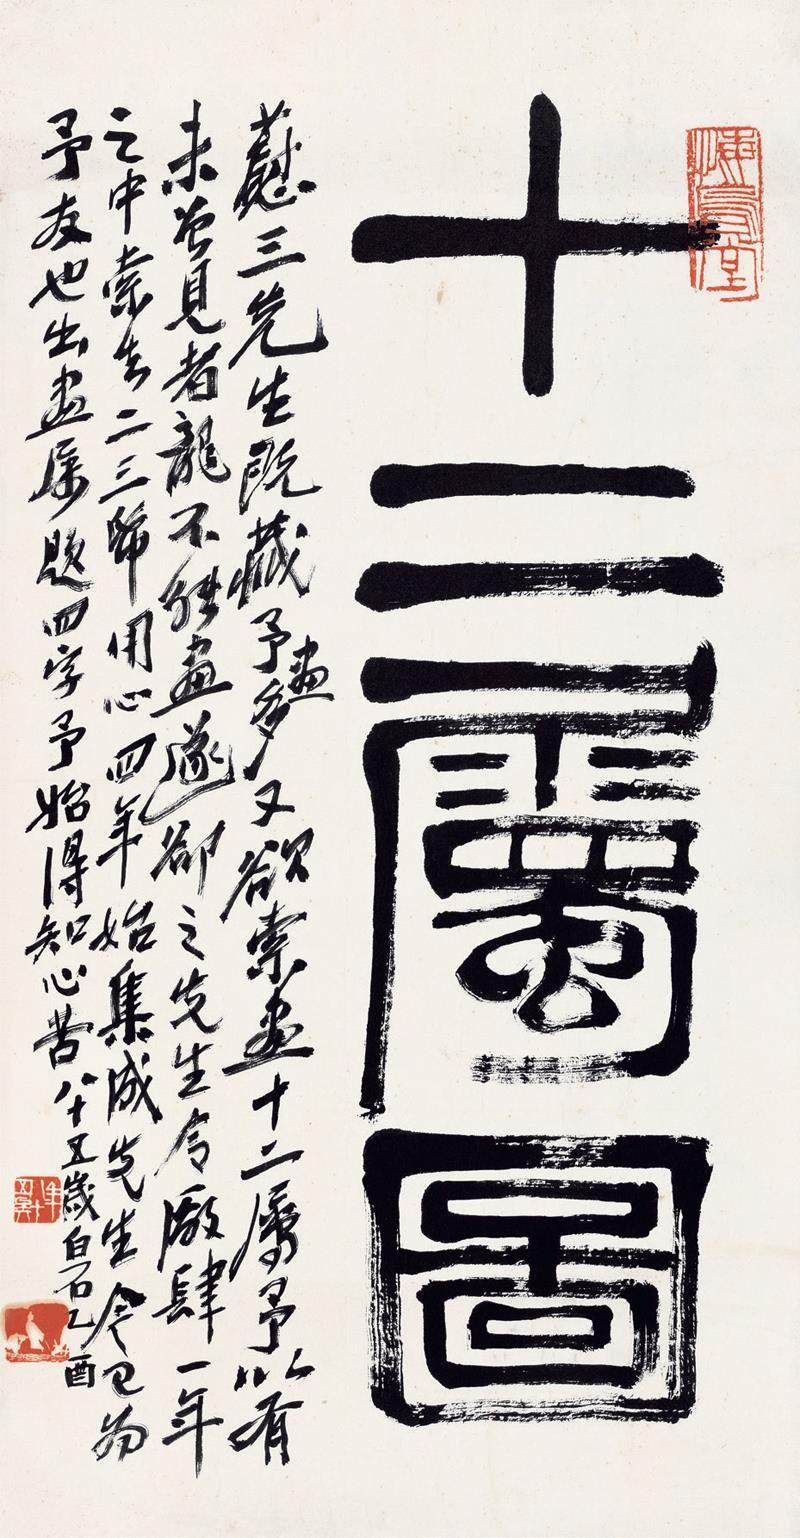 十二屬圖
悔烏堂
三先生既藏予畫多又欲索畫十二屬予以有
未曾見者龍不能畫遂卻之先生令廠肆一年
之中索去二三用心四年始集成先生今已為
予友也出畫属題四字予始得知心苦八十五歲白石乙酉